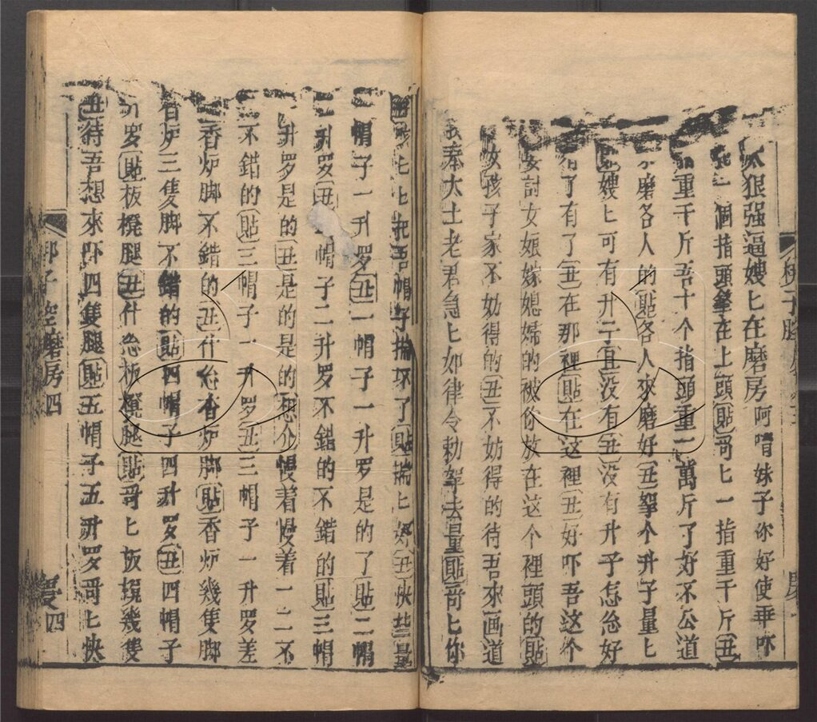 狠强逼嫂匕在磨房阿唷妹子你好使乖吓
一個指頭拏在上頭貼哥匕一指重千斤丑
重千斤吾十个指頭重一萬斤了好不公道
磨各人的貼各人來磨好丑拏个升子量匕
嫂匕可有升子旦没有丑没有升子怎怹好
有了有了丑在那裡貼在这裡丑好吓吾这个
要討女娘嫁媳婦的被你放在这个裡頭的貼
女孩子家不妨得的丑不妨得的待吾來画道
奉太上老君急匕如律令勅拏去量貼哥匕你
匕匕把吾帽子揣坏了貼揣匕好丑快些量
帽子一升罗丑一帽子一升罗是的了貼二帽
二升罗丑帽子二升罗不錯的不錯的貼三帽
升罗是的丑是的是的想个慢着慢着一二不
不錯的貼三帽子一升罗丑三帽子一升罗差
香炉脚不錯的丑什怹香炉脚貼香炉幾隻脚
香炉三隻脚不錯的貼四帽子四升罗丑四帽子
升罗貼板櫈腿丑什怹板櫈腿貼哥匕板櫈幾隻
丑待吾想來吓四隻腿貼五帽子五升罗哥匕快
磨房四
四